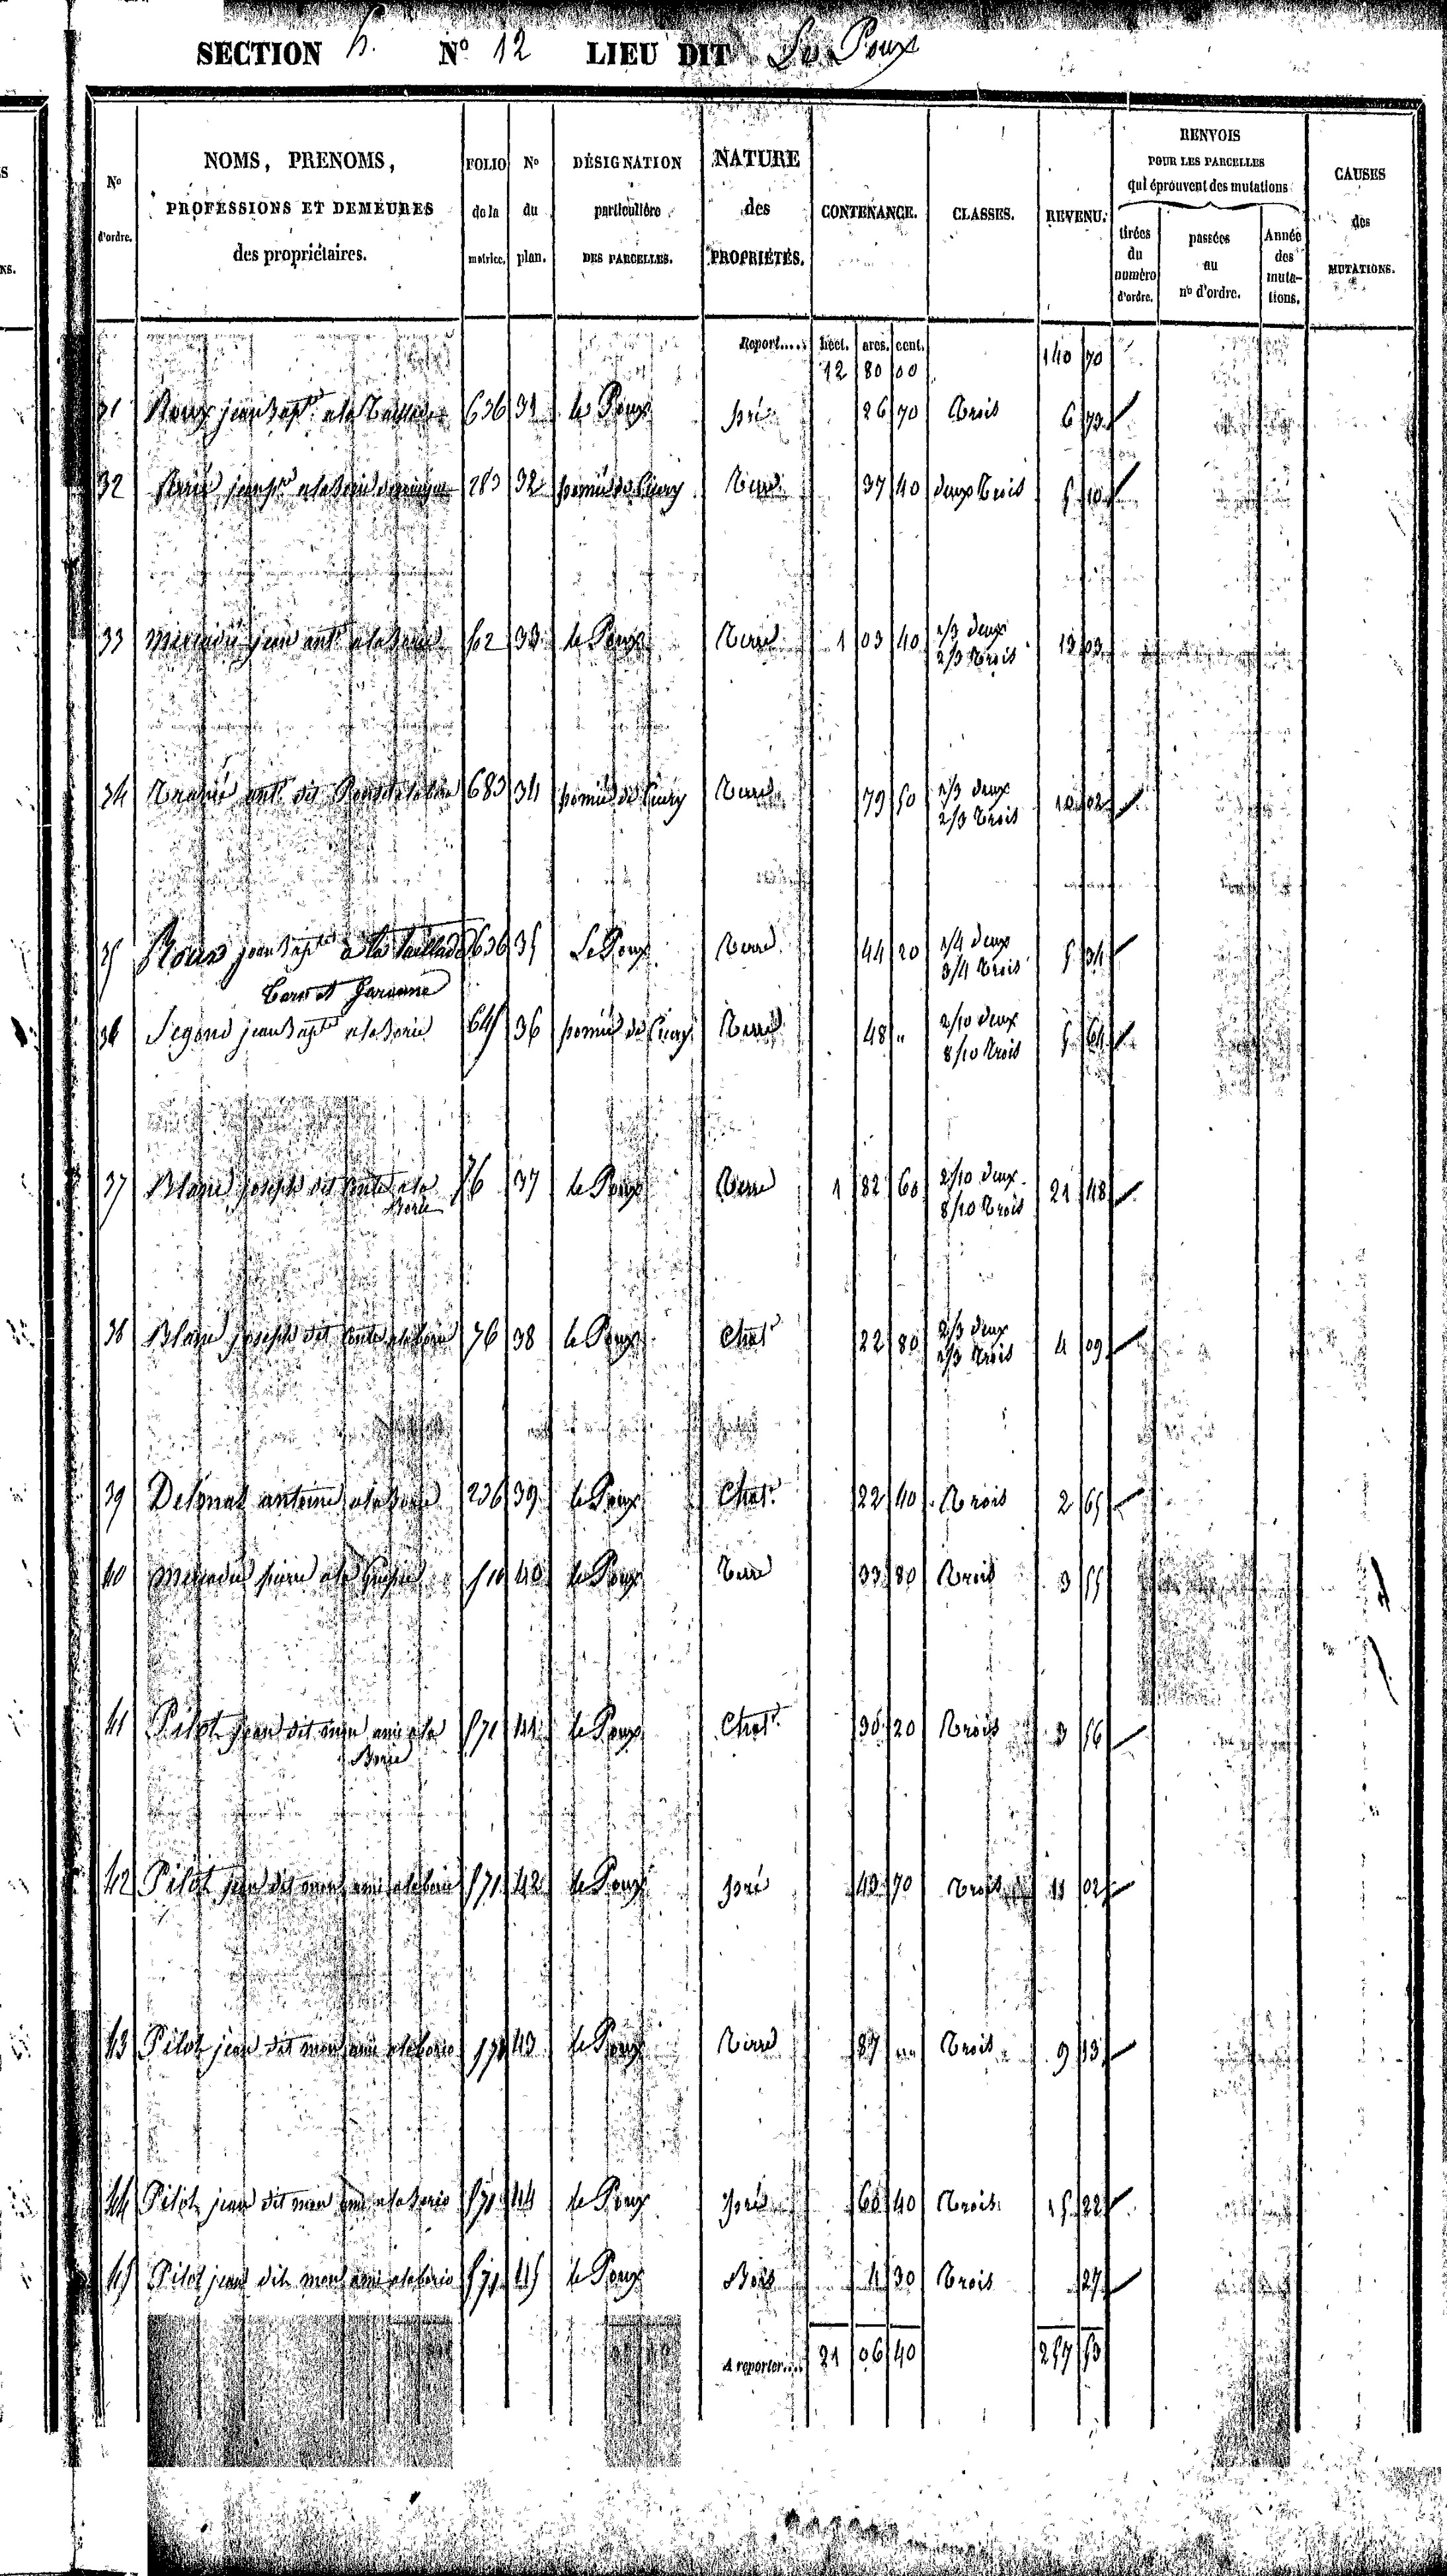 SECTION h. N° 12 LIEU DIT Le Poux
N° d'ordre.
NOMS, PRENOMS, PROFESSIONS ET DEMEURES des propriétaires.
FOLIO de la matrice.
N° du plan.
DÉSIGNATION particulière DES PARCELLES.
NATURE des PROPRIÉTÉS.
CONTENANCE.
CLASSES.
REVENU.
RENVOIS POUR LES PARCELLES qui éprouvent des mutations
tirées du numéro d'ordre.
passées au n° d'ordre.
Année des mutations.
CAUSES des MUTATIONS.
Report.... hect. ares. cent.
12 80 00 140 70
31 Roux jean bapte a la 636 31 le Poux pré 26 70 Trois 6 73
32 283 32 Terre 37 40 deux Trois 5 10
33 jean ant. a la borie 62 33 le Poux Terre 1 03 40 1/3 deux 2/3 Trois 13 03
34 ant. dit 683 34 Terre 79 50 1/3 deux 2/3 Trois 10 02
35 Roux jean bapte a la Taillade 636 35 Le Poux Terre 44 20 1/4 deux 3/4 Trois 5 34
Tarn et Garonne
36 Segond jean bapte a la borie 645 36 Terre 48 " 2/10 deux 8/10 Trois 5 64
37 Blanc joseph dit a la borie 76 37 le Poux Terre 1 82 60 2/10 deux 8/10 Trois 21 48
38 Blanc joseph dit a la borie 76 38 le Poux Chat. 22 80 2/3 deux 1/3 Trois 4 09
39 antoine a la borie 236 39 le Poux Chat. 22 40 Trois 2 65
40 pierre a la 510 40 le Poux Terre 33 80 Trois 3 55
41 Pilot jean dit mon ami a la Borie 571 41 le Poux Chat. 30 20 Trois 3 56
42 Pilot jean dit mon ami a la borie 571 42 le Poux pré 43 70 Trois 11 02
43 Pilot jean dit mon ami a la borie 571 43 le Poux Terre 87 " Trois 9 13
44 Pilot jean dit mon ami a la borie 571 44 le Poux pré 60 40 Trois 15 22
45 Pilot jean dit mon ami a la borie 571 45 le Poux Bois 4 30 Trois 27
A reporter.... 21 06 40 257 53